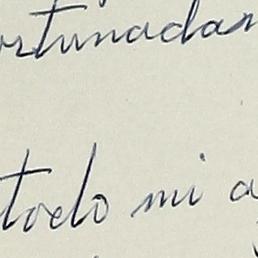 ortunadam
todo mi a